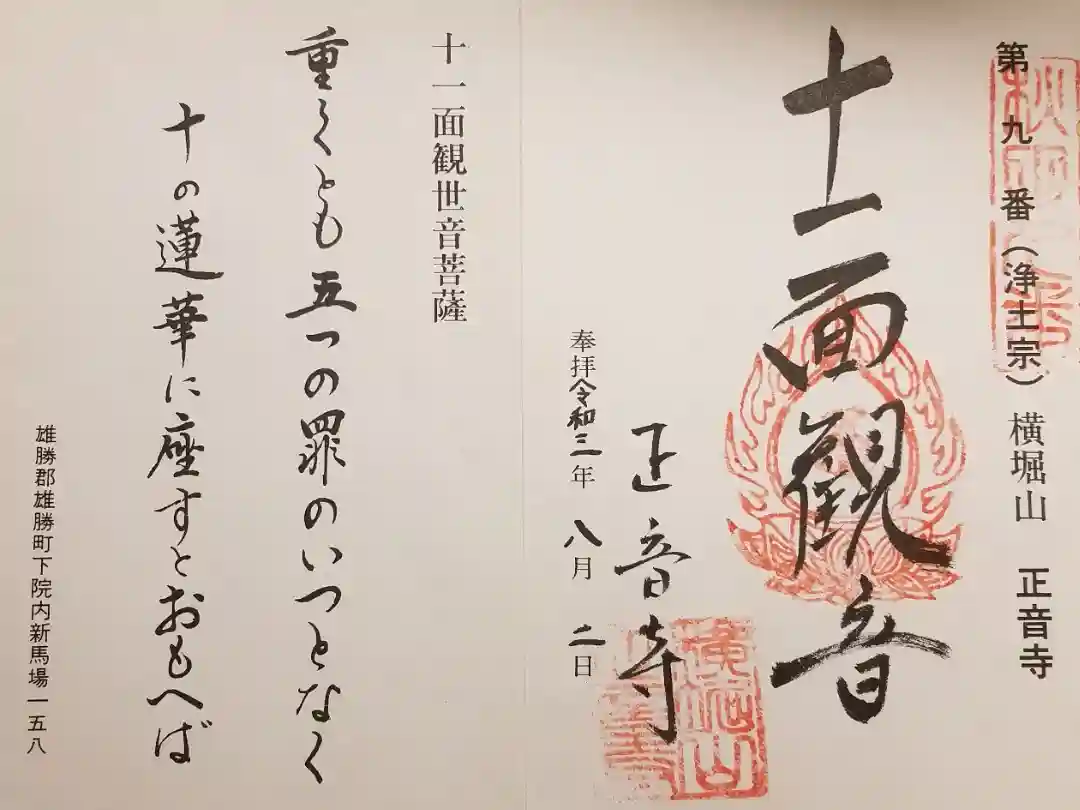 第九番（浄土宗）横堀山　正音寺
十一面観音
正音寺
奉拝令和三年八月二日
横堀山
十一面観世音菩薩
重くとも五つの罪のいつとなく
十の蓮華に座すとおもへば
雄勝郡雄勝町下院内新馬場一五八